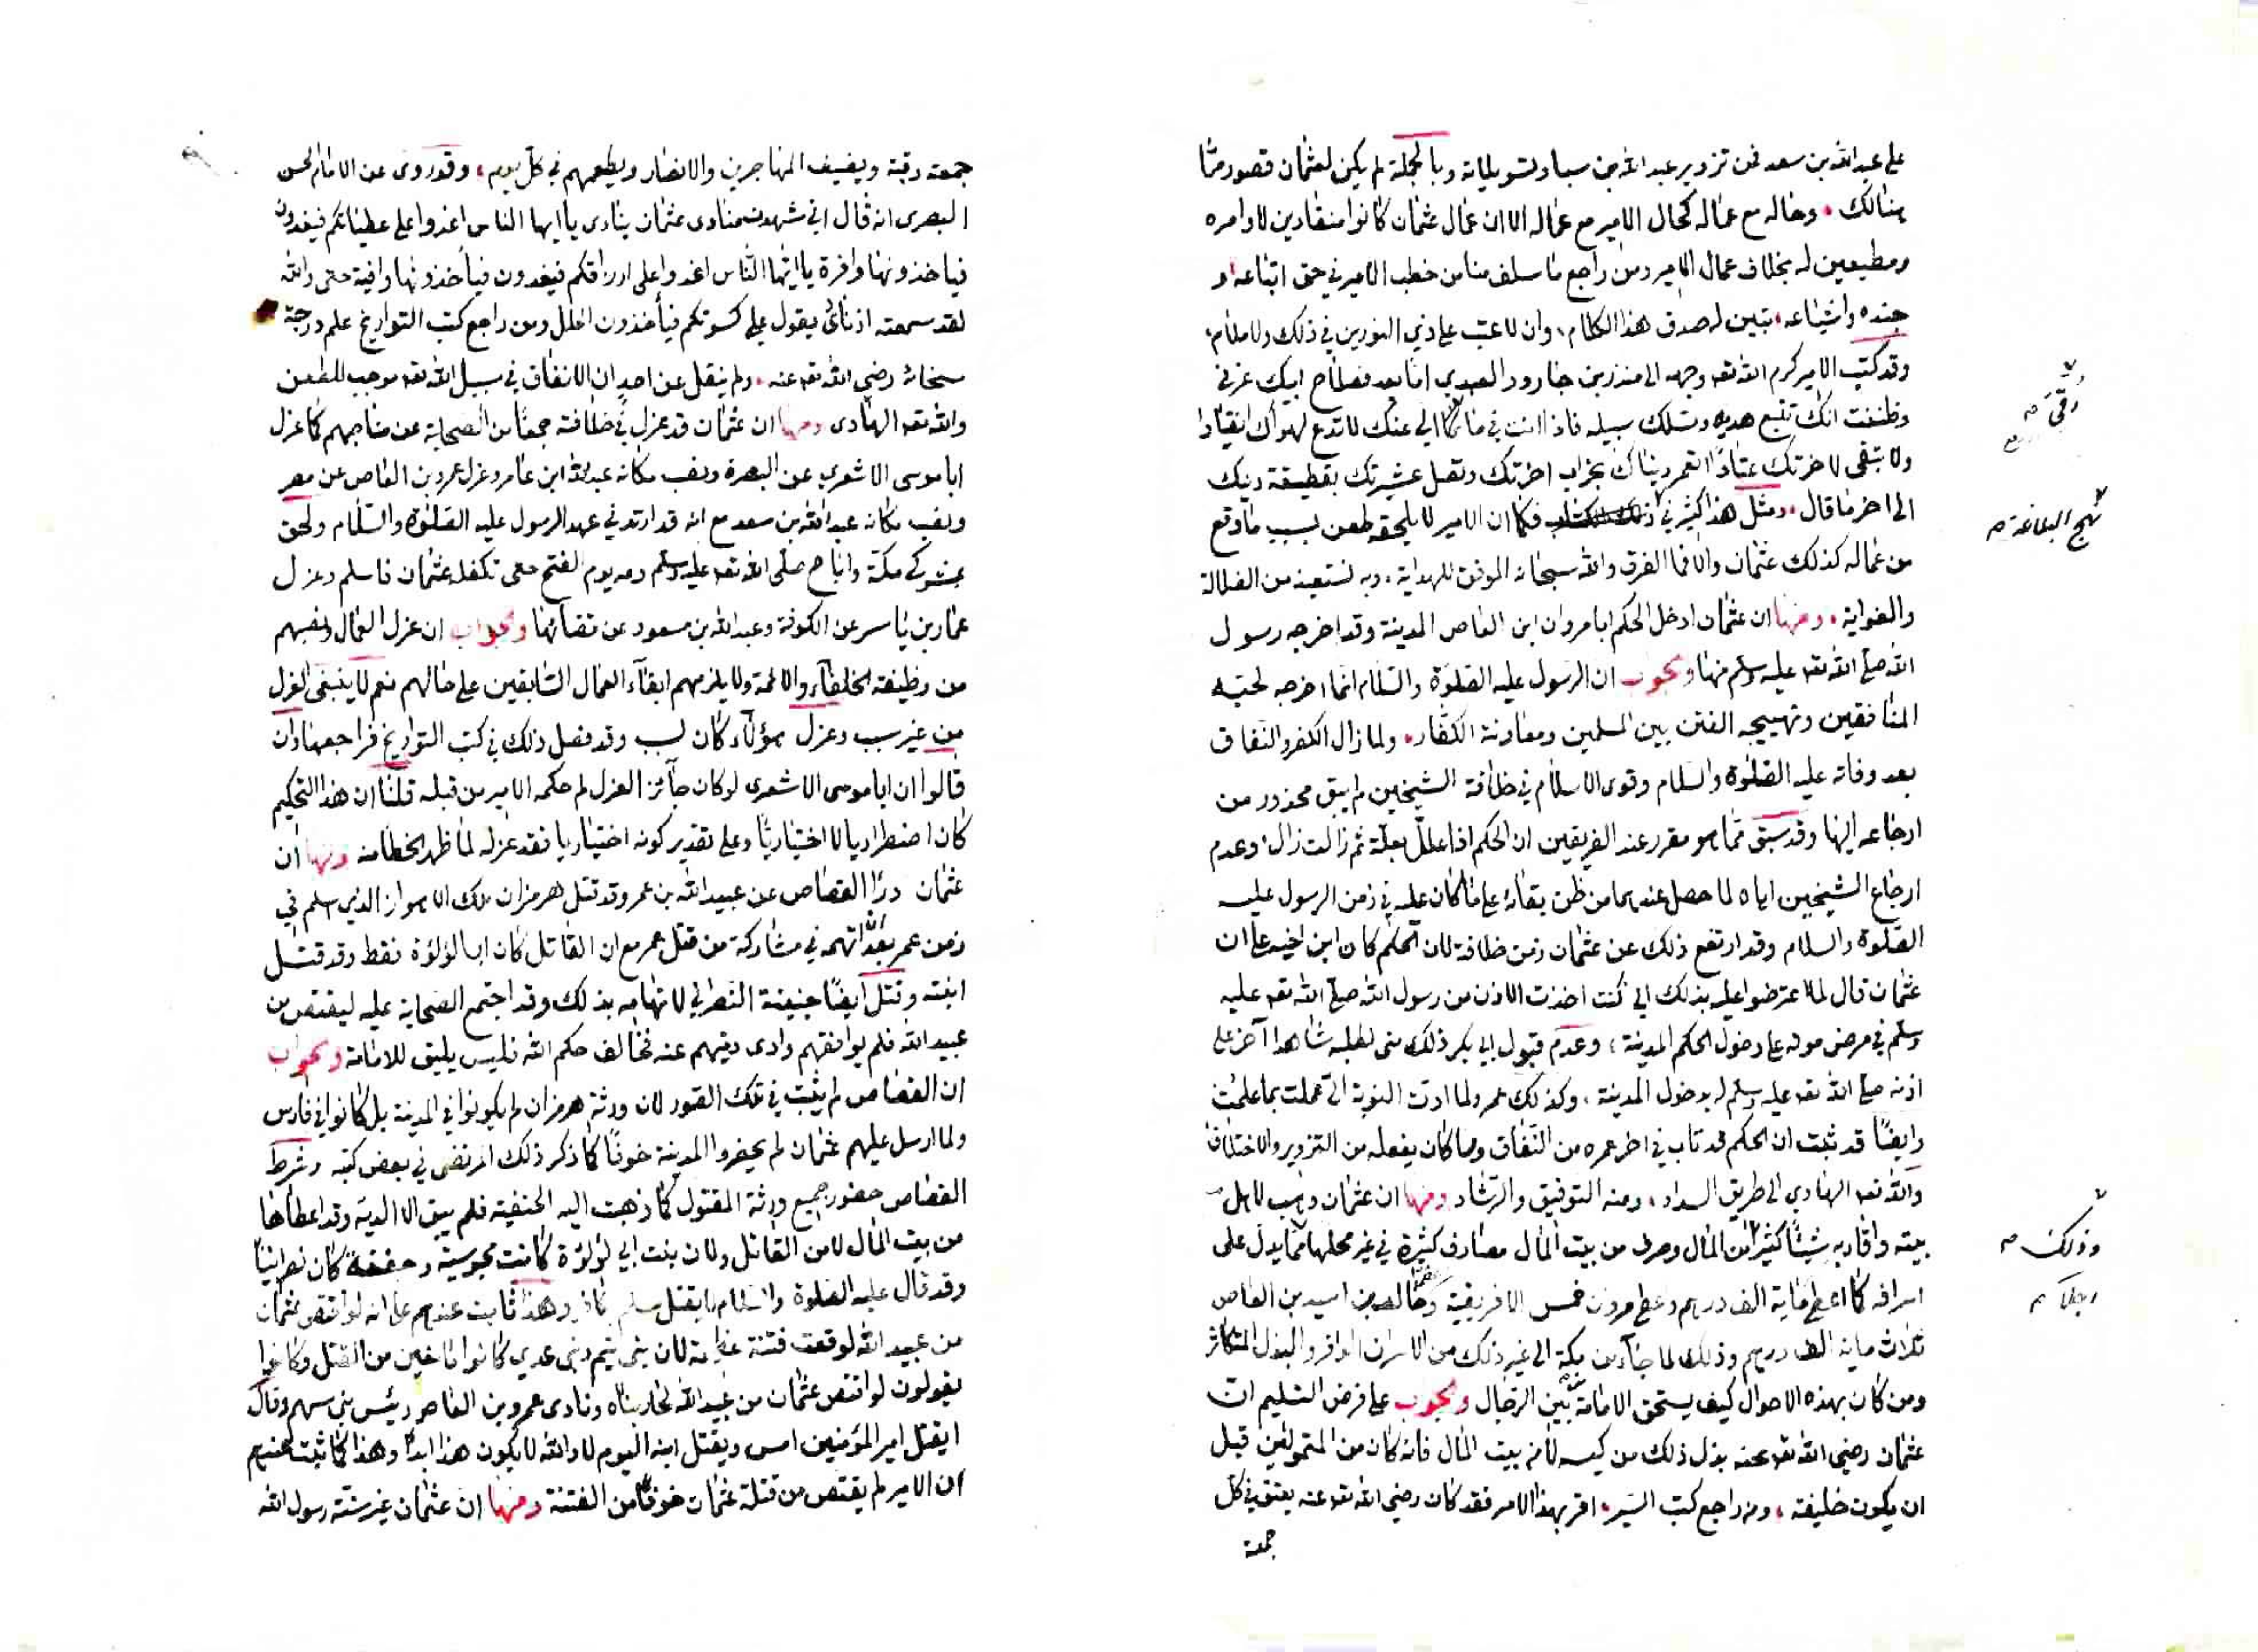 على عبد الله بن سعد فمن تزوير عبد الله بن سبا وتسويلاته وبالجملة لم يكن لعثمان قصور مما
هنالك . وحاله مع عماله كحال الامير مع عماله الا ان عمال عثمان كانوا منقادين لاوامره
ومطيعين له بخلاف عمال الامير ومن راجع ما سلف منا من خطب الامير في حق اتباعه و
جنده واشياعه . تبين له صدق هذا الكلام ، وان لا عتب على ذي النورين في ذلك ولا ملام ،
وقد كتب الامير كرم الله تعه وجهه الى منذر بن جارود العبدي اما بعد فصلاح ابيك غرني
وظننت انك تتبع هديه وتسلك سبيله فاذا انت في ما رقى الي عنك لا تدع لهواك انقيادا
رقى صح
ولا تبقى لاخرتك عتادا اتعمر دنياك بخراب اخرتك وتصل عشيرتك بقطيعة دينك
الى اخر ما قال . ومثل هذا كثير في فكما ان الامير لا يلحقه طعن بسبب ما وقع
نهج البلاغة صح
من عماله كذلك عثمان والا فما الفرق والله سبحانه الموفق للهداية . وبه نستعيذ من الضلالة
والغواية . ومنها ان عثمان ادخل الحكم ابا مروان ابن العاص المدينة وقد اخرجه رسول
الله صلى الله تعه عليه وسلم منها والجواب ان الرسول عليه الصلوة والسلام انما اخرجه لحبه
المنافقين وتهييجه الفتن بين المسلمين ومعاونة الكفار . ولما زال الكفر والنفاق
بعد وفاته عليه الصلوة والسلام وقوى الاسلام في خلافة الشيخين لم يبق محذور من
ارجاعه اليها وقد سبق مما هو مقرر عند الفريقين ان الحكم اذا علل بعلة ثم زالت زال ؛ وعدم
ارجاع الشيخين اياه لما حصل عندهما من ظن بقائه على ما كان عليه في زمن الرسول عليه
الصلوة والسلام وقد ارتفع ذلك عن عثمان زمن خلافة لان الحكم كان ابن اخيه على ان
عثمان قال لما اعترضوا عليه بذلك اني كنت اخذت الاذن من رسول الله صلى الله تعه عليه
وسلم في مرض موته على دخول الحكم المدينة ، وعدم قبول ابي بكر ذلك منى لطلبه شاهدا آخر على
اذنه صلى الله تعه عليه وسلم له بدخول المدينة . وكذلك عمر ولما ادت النوبة الي عملت بما علمت
وايضا قد ثبت ان الحكم قد تاب في اخر عمره من النفاق ومما كان يفعله من التزوير والاختلاق
والله تعه الهادي الى طريق السداد ، ومنه التوفيق والرشاد ومنها ان عثمان وهب لاهل
بيته واقاربه شيئا كثيرا من المال وصرف من بيت المال مصارف كثيرة في غير محلها مما يدل على
وذلك صح
اسرافه كما اعطى مائة الف درهم وعطى مروان خمس الافريقية وخالد بن اسيد بن العاص
ثلاث مائة الف درهم وذلك لما جاء من مكة الى غير ذلك من الاسراف الوافر والبذل المتكاثر
ومن كان بهذه الاحوال كيف يستحق الامامة بين الرجال والجواب على فرض التسليم ان
عثمان رضي الله تعه عنه بذل ذلك من كيسه لا من بيت المال فانه كان من المتمولين قبل
ان يكون خليفة ، ومن راجع كتب السير . اقر بهذا الامر فقد كان رضي الله تعه عنه يعتق في كل
جمعة
جمعة رقبة ويضيف المهاجرين والانصار ويطعمهم في كل يوم ، وقد روى عن الامام الحسن
البصرى انه قال اني شهدت منادى عثمان ينادى يا ايها الناس اغدوا على عطياتكم فيغدون
فياخذونها وافرة يا ايها الناس اغدوا على ارزاقكم فيغدون فيأخذونها وافية حتى والله
لقد سمعته اذناى يقول على كسوتكم فيأخذون الحلل ومن راجع كتب التواريخ علم درجة
سخائه رضي الله تعه عنه . ولم ينقل عن احد ان الانفاق في سبيل الله تعه موجب للطعن
والله تعه الهادى ومنها ان عثمان قد عزل في خلافته جمعا من الصحابة عن مناصبهم كما عزل
ابا موسى الاشعري عن البصرة ونصب مكانه عبد الله ابن عامر وعزل عمرو بن العاص عن مصر
ونصب مكانه عبد الله بن سعد مع انه قد ارتد في عهد الرسول عليه الصلوة والسلام ولحق
بمشركي مكة واباح صلى الله تعه عليه وسلم دمه يوم الفتح حتى تكفله عثمان فاسلم وعزل
عمار بن ياسر عن الكوفة وعبد الله بن مسعود عن قضائها والجواب ان عزل العمال ونصبهم
من وظيفة الخلفاء والائمة ولا يلزمهم ابقاء العمال السابقين على حالهم نعم لا ينبغى العزل
من غير سبب وعزل هؤلاء كان لسبب وقد فصل ذلك في كتب التواريخ فراجعها وان
قالوا ان ابا موسى الاشعرى لو كان جائز العزل لم حكمه الامير من قبله قلنا ان هذا التحكيم
كان اضطراريا لا اختياريا وعلى تقدير كونه اختياريا فقد عزله لما ظهر الخطا منه ومنها ان
عثمان درأ القصاص عن عبيد الله بن عمر وقد قتل هرمزان ملك الاهواز الذي اسلم في
زمن عمر بعد ان اتهمه في مشاركة من قتل عمر مع ان القاتل كان ابا لؤلؤة فقط وقد قتل
ابنته وقتل ايضا جفينة النصراني لاتهامه بذلك وقد اجتمع الصحابة عليه ليقتص من
عبيد الله فلم يوافقهم وادى ديتهم عنه فخالف حكم الله فليس يليق للامامة والجواب
ان القصاص لم يثبت في تلك الصور لان ورثة هرمزان لم يكونوا في المدينة بل كانوا في فارس
ولما ارسل عليهم عثمان لم يحضروا المدينة خوفا كما ذكر ذلك المرتضى في بعض كتبه وشرط
القصاص حضور جميع ورثة المقتول كما ذهبت اليه الحنفية فلم يبق الا الدية وقد اعطاها
من بيت المال لا من القاتل ولان بنت ابي لؤلؤة كانت مجوسية وجفينة كان نصرانيا
وقد قال عليه الصلوة والسلام لا يقتل مسلم بكافر وهذا ثابت عندهم على انه لو اقتص عثمان
من عبيد الله لوقعت فتنة عظيمة لان بنى تيم وبنى عدي كانوا مانعين من القتل وكانوا
يقولون لو اقتص عثمان من عبيد الله لحاربناه ونادى عمرو بن العاص رئيس بني سهم وقال
ايقتل امير المؤمنين امس ويقتل ابنه اليوم لا والله لا يكون هذا ابدا وهذا كما ثبت عندهم
ان الامير لم يقتص من قتلة عثمان خوفا من الفتنة ومنها ان عثمان غير سنة رسول الله